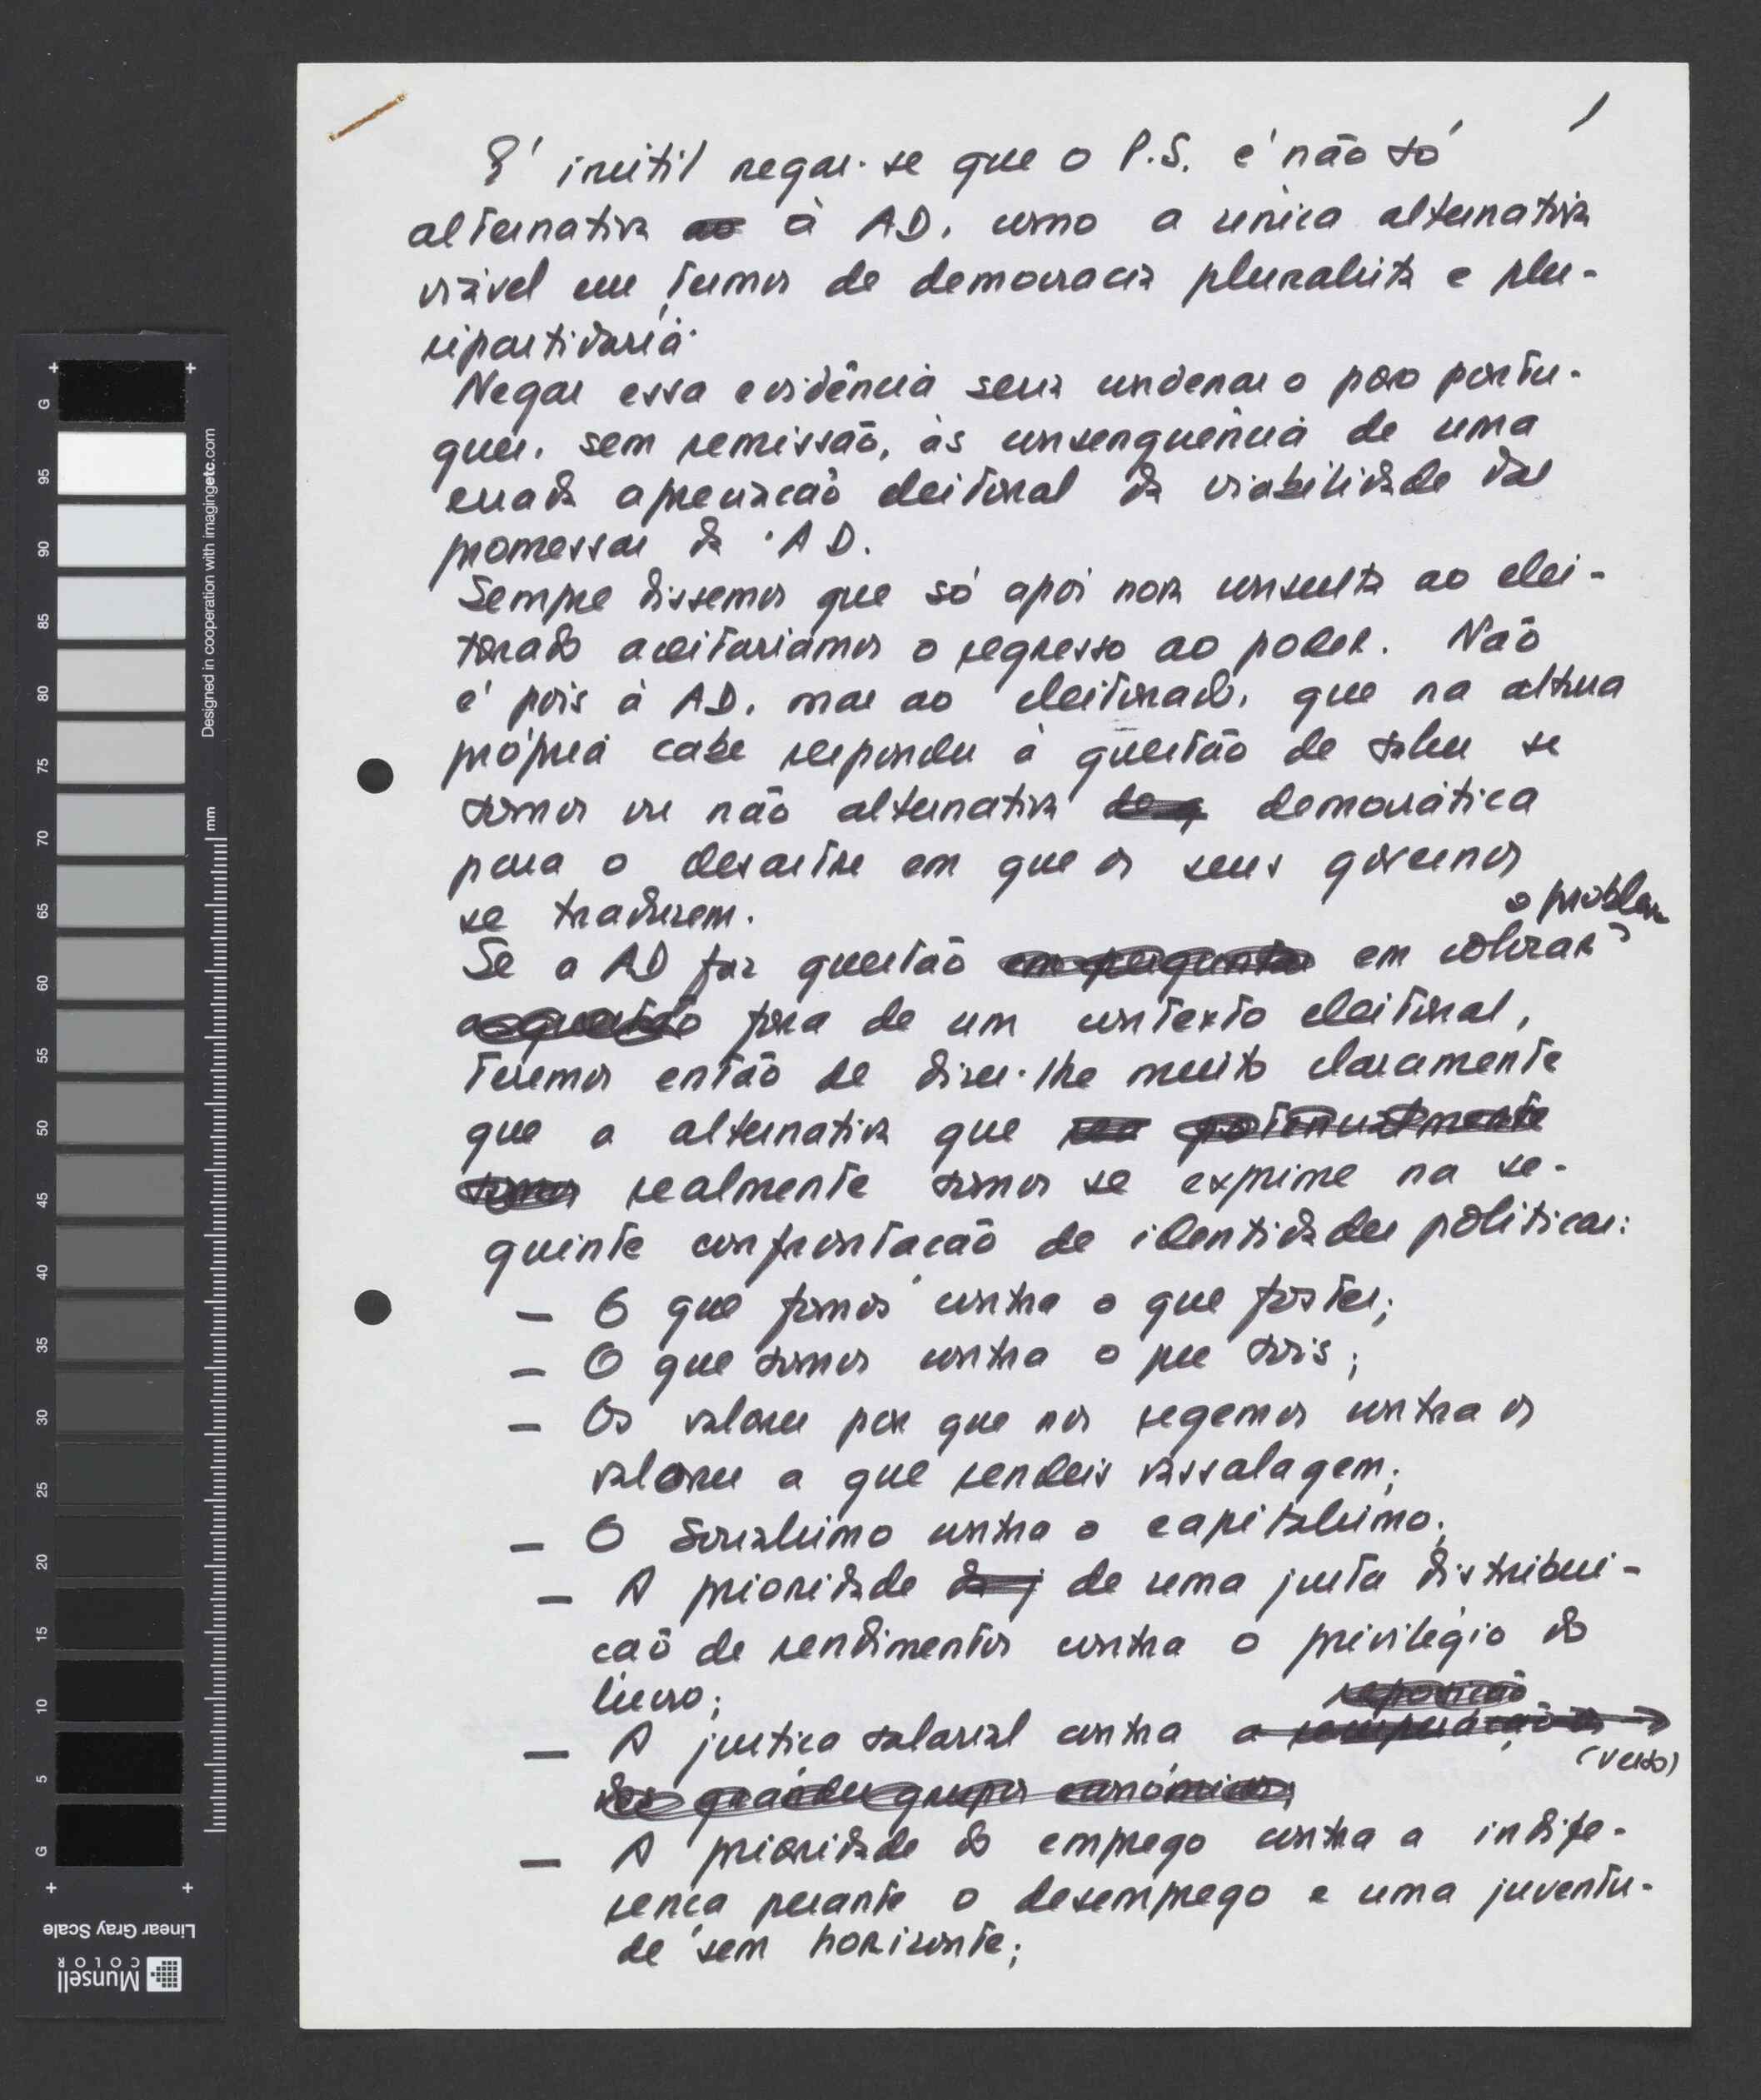 1
É inútil negar-se que o P.S. é não só
alternativa ao à AD, como a única alternativa
viável em termos de democracia pluralista e plu-
ripartidária.
Negar essa evidência seria condenar o povo portu-
guês, sem remissão, às consenquência de uma
errada apreciação eleitoral da viabilidade das
promessas da AD.
Sempre dissemos que só após nova consulta ao elei-
torado aceitaríamos o regresso ao poder. Não
é pois à AD, mas ao eleitorado, que na altura
própria cabe responder à questão de saber se
somos ou não alternativa de q democrática
para o desastre em que os seus governos
se traduzem.
o problema
Se a AD faz questão em perguntar em colocar
a questão fora de um contexto eleitoral,
teremos então de dizer-lhe muito claramente
que a alternativa que potencialmente
somos realmente somos se exprime na se-
guinte confrontação de identidades políticas:
— O que fomos contra o que fostes;
— O que somos contra o que sois;
— Os valores por que nos regemos contra os
valores a que rendeis vassalagem;
— O Socialismo contra o capitalismo;
— A prioridade da j de uma justa distribui-
ção de rendimentos contra o privilégio do
lucro;
reposição
— A justiça salarial contra a recuperação
(verso)
dos grandes grupos económicos;
— A prioridade do emprego contra a indife-
rença perante o desemprego e uma juventu-
de sem horizonte;
Designed in cooperation with imagingetc.com
mm
G
95
90
85
80
75
70
65
60
55
50
45
40
35
30
25
20
15
10
5
G
Linear Gray Scale
Munsell
COLOR